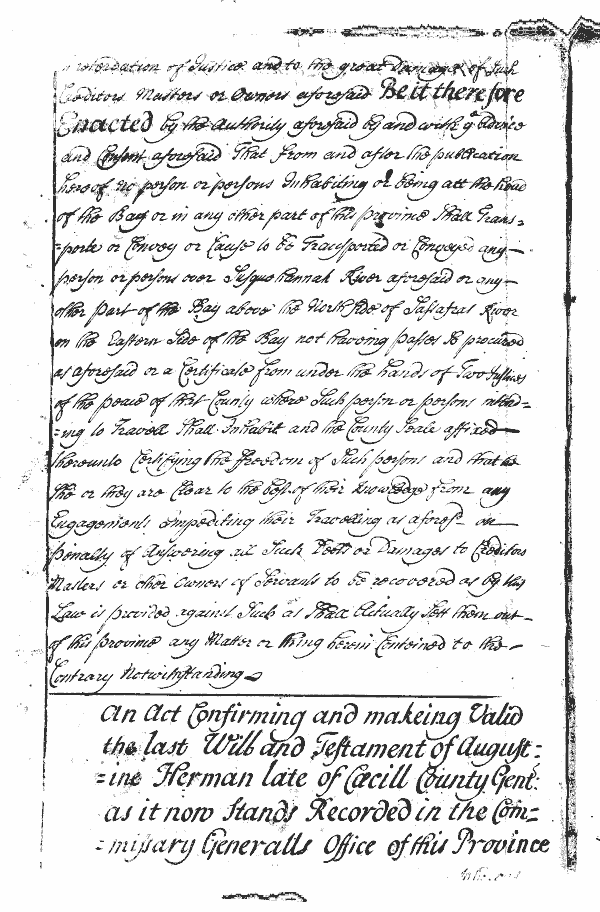 of Justice and to the great Damage of Such
Creditors Masters or Owners aforesaid Be it therefore
Enacted by the Authority aforesaid by and with ye advice
and Consent aforesaid That from and after the publication
hereof no person or persons Inhabiting or being att the head
of the Bay or in any other part of this province Shall Trans=
=porte or Convey or Cause to be Transported or Conveyed any
person or persons over Susquehannah River aforesaid or any
other Part of the Bay above the North side of Sassafras River
on the Eastern Side of the Bay not haveing passes so procured
as aforesaid or a Certificate from under the hands of Two Justices
of the peace of that County where Such person or persons intend=
=ing to Travell Shall Inhabit and the County Seale affixed
thereunto Certifying the ffreedom of Such persons and that he
She or they are Clear to the best of their knowledge from any
Engagements impediting their Travelling as aforesd on
penalty of Answering all Such Debts or Damages to Creditors
Masters or other Owners of Servants to be recovered as by this
Law is provided against Such as Shall Actually Sett them out
of this province any Matter or thing herein Conteined to the
Contrary Notwithstanding
An Act Confirming and makeing Valid
the last Will and Testament of August=
=ine Herman late of Cæcill County Gent.
as it now Stands Recorded in the Com=
=missary Generalls Office of this Province
Whereas